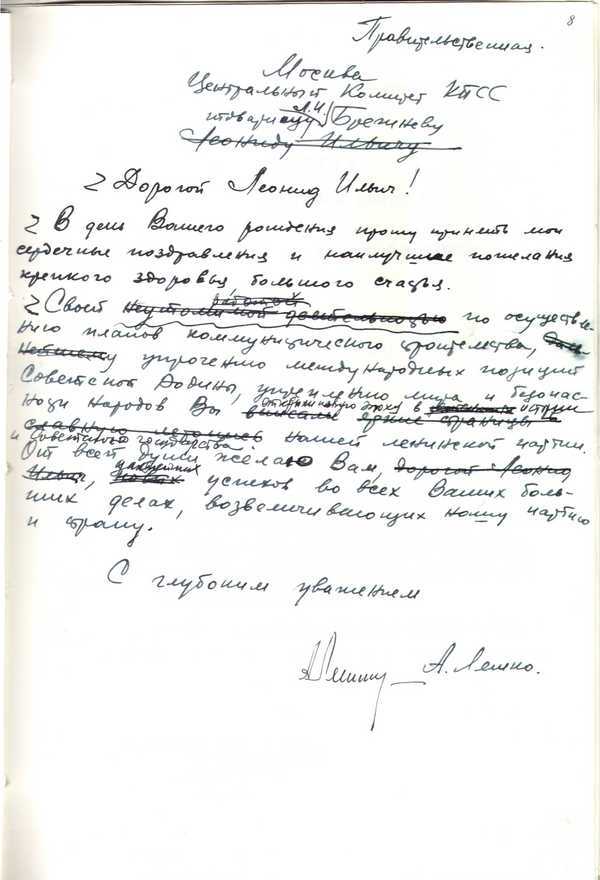 8
Правительственная.
Москва
Центральный Комитет КПСС
товарищу Л.И. Брежневу
Леониду Ильичу
Дорогой Леонид Ильич!
В день Вашего рождения прошу принять мои
сердечные поздравления и наилучшие пожелания
крепкого здоровья, большого счастья.
работой
Своей неутомимой деятельностью по осуществле-
нию планов коммунистического строительства,
упрочению международных позиций
Советской Родины, укреплению мира и безопас-
открыли новую эпоху в истории
ности народов Вы вписали яркие страницы в
славную летопись нашей ленинской партии
и Советского государства.
От всей души желаю Вам, дорогой Леонид
Ильич, новых успехов во всех Ваших боль-
ших делах, возвеличивающих нашу партию
и страну.
С глубоким уважением
А. Лешко.